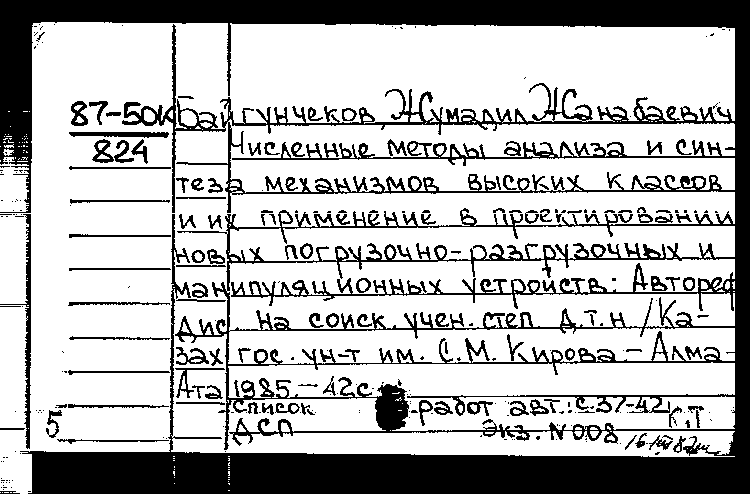 87-50К Байгунчеков, Жумадил Жанабаевич
824 Численные методы анализа и син-
теза механизмов высоких классов
и их применение в проектировании
новых погрузочно-разгрузочных и
манипуляционных устройств: Автореф
Дис. на соиск. учен. степ. д.т.н. / Ка-
зах гос. ун-т им. С.М. Кирова - Алма-
Ата 1985. - 42с
Список работ авт.: с.37-42
ДСП Экз. N 008 К,Т
5